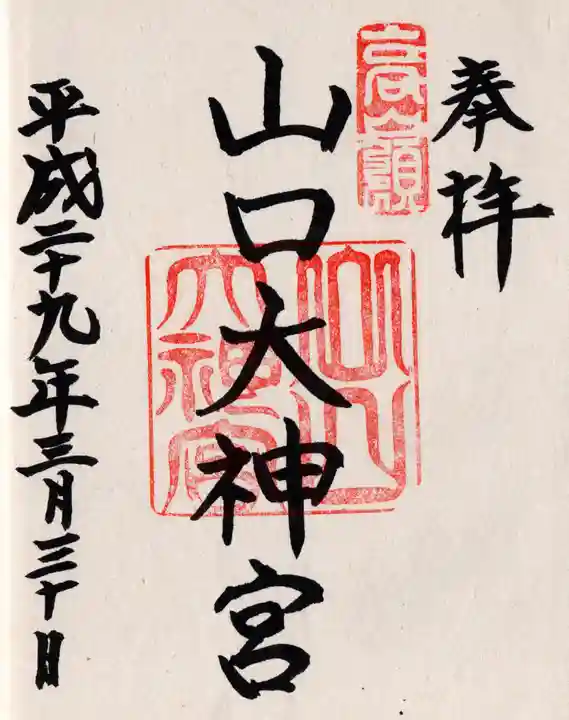 奉拝
高嶺
山口大神宮
山口
大神宮
平成二十九年三月三十日